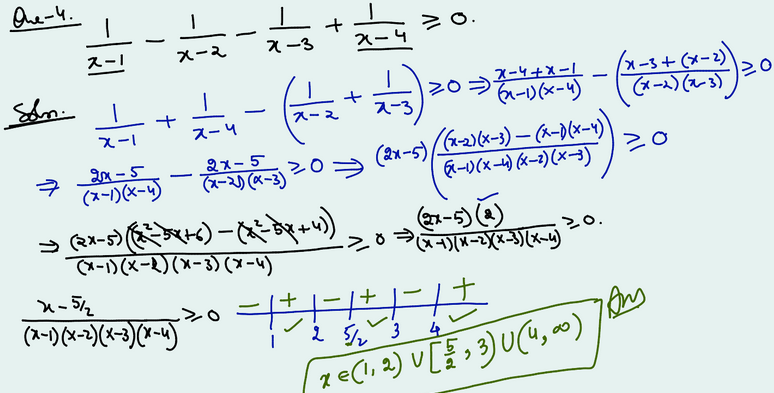 Que-4. 1/(x-1) - 1/(x-2) - 1/(x-3) + 1/(x-4) ≥ 0.
Soln. 1/(x-1) + 1/(x-4) - (1/(x-2) + 1/(x-3)) ≥ 0 ⇒ (x-4+x-1)/((x-1)(x-4)) - ((x-3+(x-2))/((x-2)(x-3))) ≥ 0
⇒ (2x-5)/((x-1)(x-4)) - (2x-5)/((x-2)(x-3)) ≥ 0 ⇒ (2x-5) (((x-2)(x-3) - (x-1)(x-4))/((x-1)(x-4)(x-2)(x-3))) ≥ 0
⇒ (2x-5)((x²-5x+6) - (x²-5x+4))/((x-1)(x-2)(x-3)(x-4)) ≥ 0 ⇒ (2x-5)(2)/((x-1)(x-2)(x-3)(x-4)) ≥ 0.
(x-5/2)/((x-1)(x-2)(x-3)(x-4)) ≥ 0 - + - + - +
1 2 5/2 3 4
x ∈ (1, 2) ∪ [5/2, 3) ∪ (4, ∞) Ans